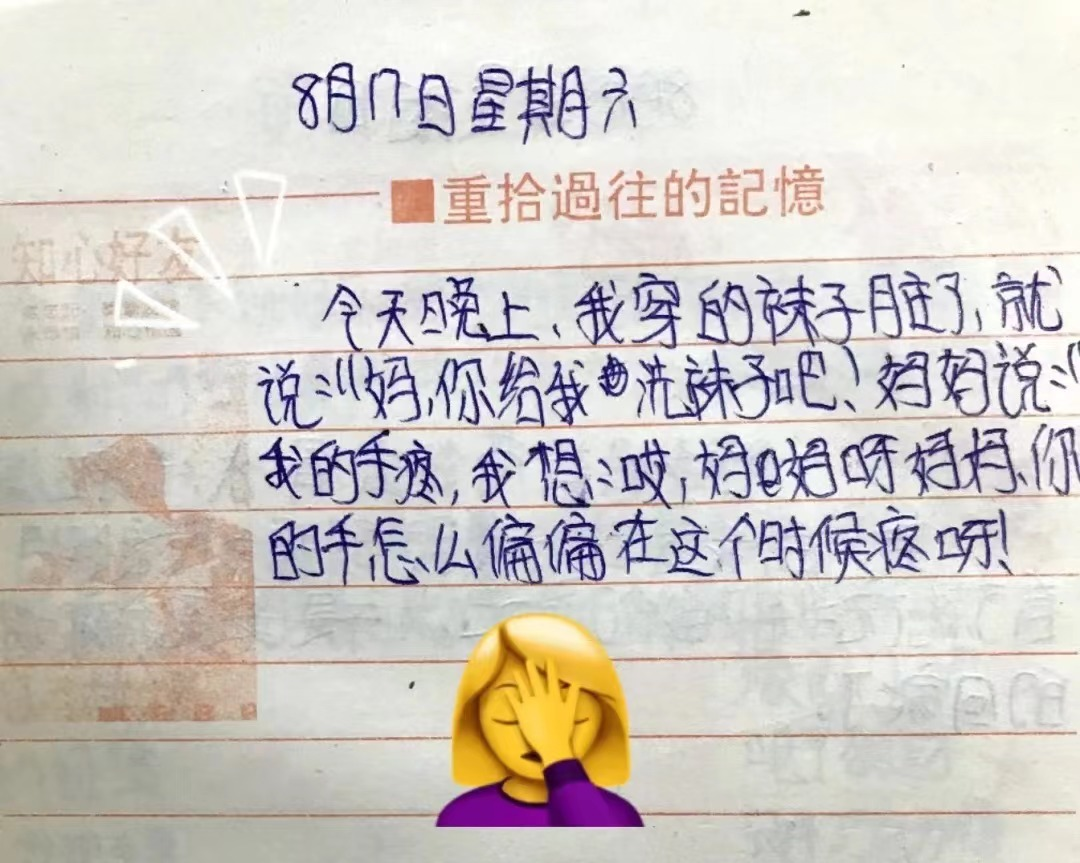 8月17日星期六
■重拾過往的記憶
知心好友
今天晚上,我穿的袜子脏了,就
说:“妈,你给我洗袜子吧!妈妈说:“
我的手疼,我想:哎,妈妈呀妈妈,你
的手怎么偏偏在这个时候疼呀!